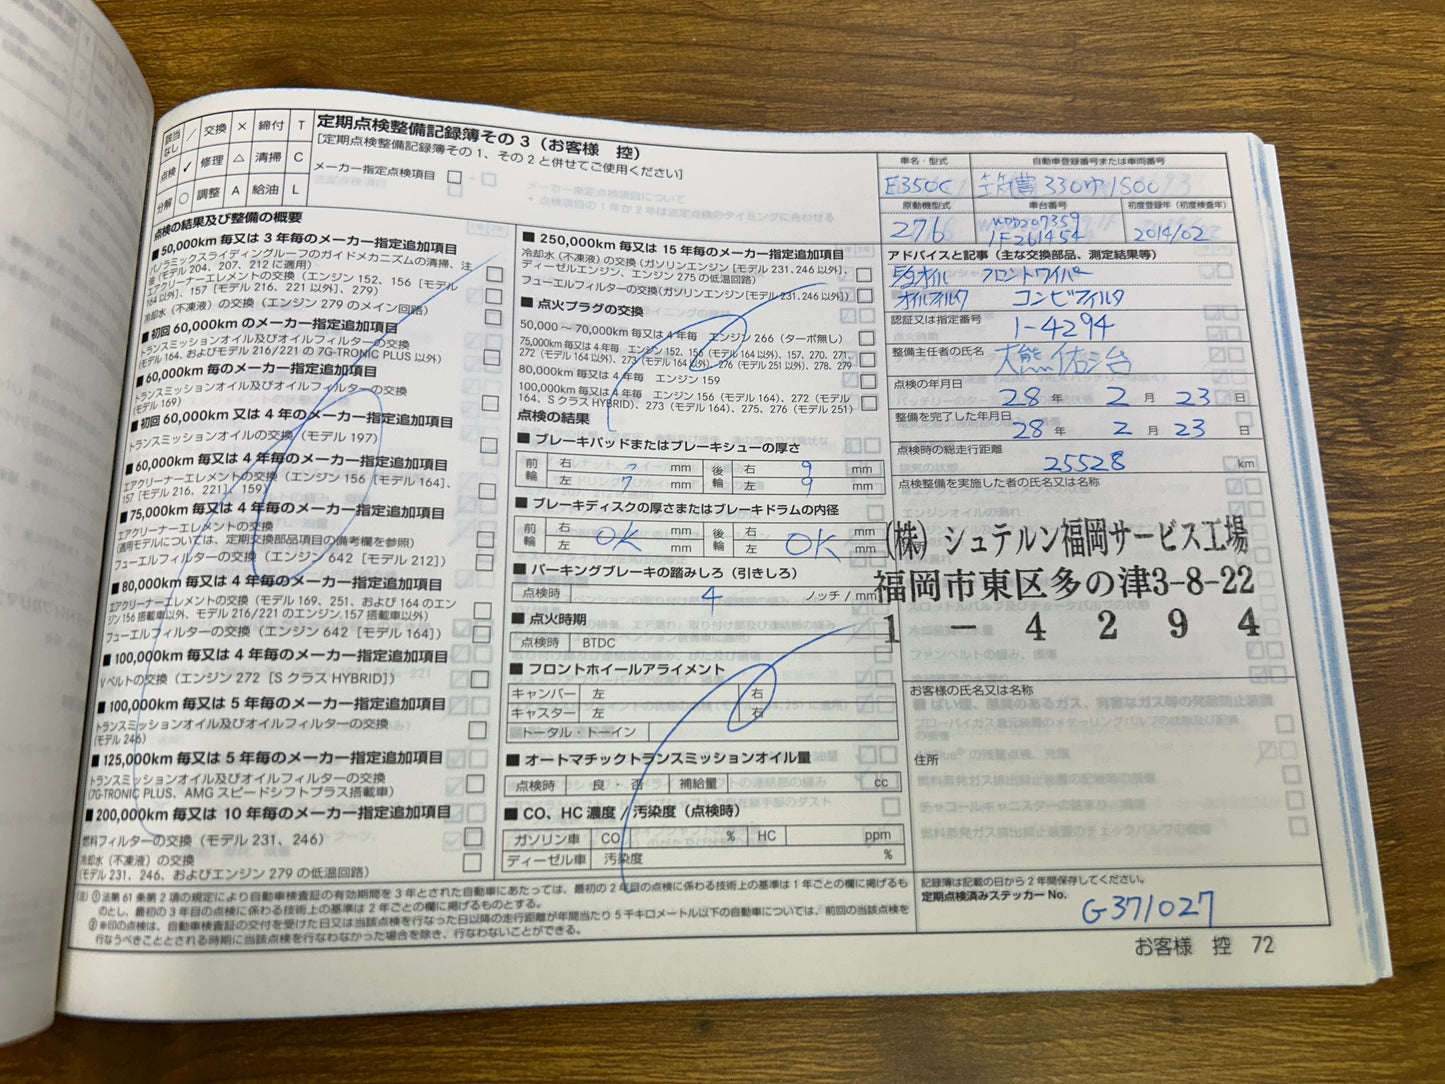 該当なし ／ 交換 × 締付 T
点検 ✓ 修理 △ 清掃 C
分解 ○ 調整 A 給油 L
定期点検整備記録簿その3（お客様 控）
[定期点検整備記録簿その1、その2と併せてご使用ください]
メーカー指定点検項目 □
点検の結果及び整備の概要
■ 50,000km 毎又は 3 年毎のメーカー指定追加項目
パノラミックスライディングルーフのガイドメカニズムの清掃、注油（モデル 204、207、212 に適用） □
エアクリーナーエレメントの交換（エンジン 152、156［モデル 164 以外］、157［モデル 216、221 以外］、279） □
冷却水（不凍液）の交換（エンジン 279 のメイン回路） □
■ 初回 60,000km のメーカー指定追加項目
トランスミッションオイル及びオイルフィルターの交換
（モデル 164、およびモデル 216/221 の 7G-TRONIC PLUS 以外） □
■ 60,000km 毎のメーカー指定追加項目
トランスミッションオイル及びオイルフィルターの交換
（モデル 169） □
■ 初回 60,000km 又は 4 年のメーカー指定追加項目
トランスミッションオイルの交換（モデル 197） □
■ 60,000km 毎又は 4 年毎のメーカー指定追加項目
エアクリーナーエレメントの交換（エンジン 156［モデル 164］、
157［モデル 216、221］、159） □
■ 75,000km 毎又は 4 年毎のメーカー指定追加項目
エアクリーナーエレメントの交換
（適用モデルについては、定期交換部品項目の備考欄を参照） □
フューエルフィルターの交換（エンジン 642［モデル 212］） □
■ 80,000km 毎又は 4 年毎のメーカー指定追加項目
エアクリーナーエレメントの交換（モデル 169、251、および 164 のエンジン 156 搭載車以外、モデル 216/221 のエンジン 157 搭載車以外） □
フューエルフィルターの交換（エンジン 642［モデル 164］） □
■ 100,000km 毎又は 4 年毎のメーカー指定追加項目
Vベルトの交換（エンジン 272［S クラス HYBRID］） □
■ 100,000km 毎又は 5 年毎のメーカー指定追加項目
トランスミッションオイル及びオイルフィルターの交換
（モデル 246） □
■ 125,000km 毎又は 5 年毎のメーカー指定追加項目
トランスミッションオイル及びオイルフィルターの交換
（7G-TRONIC PLUS、AMG スピードシフトプラス搭載車） □
■ 200,000km 毎又は 10 年毎のメーカー指定追加項目
燃料フィルターの交換（モデル 231、246） □
冷却水（不凍液）の交換
（モデル 231、246、およびエンジン 279 の低温回路） □
■ 250,000km 毎又は 15 年毎のメーカー指定追加項目
冷却水（不凍液）の交換（ガソリンエンジン［モデル 231、246 以外］、
ディーゼルエンジン、エンジン 275 の低温回路） □
フューエルフィルターの交換（ガソリンエンジン［モデル 231、246 以外］） □
■ 点火プラグの交換
50,000 ～ 70,000km 毎又は 4 年毎 エンジン 266（ターボ無し） □
75,000km 毎又は 4 年毎 エンジン 152、156（モデル 164 以外）、157、270、271、
272（モデル 164 以外）、273（モデル 164 以外）、276（モデル 251 以外）、278、279 □
80,000km 毎又は 4 年毎 エンジン 159 □
100,000km 毎又は 4 年毎 エンジン 156（モデル 164）、272（モデル 164、S クラス HYBRID）、273（モデル 164）、275、276（モデル 251） □
点検の結果
■ ブレーキパッドまたはブレーキシューの厚さ
前輪 右 7 mm 後輪 右 9 mm
左 7 mm 左 9 mm
■ ブレーキディスクの厚さまたはブレーキドラムの内径
前輪 右 OK mm 後輪 右 OK mm
左 mm 左 mm
■ パーキングブレーキの踏みしろ（引きしろ）
点検時 4 ノッチ / mm
■ 点火時期
点検時 BTDC
■ フロントホイールアライメント
キャンバー 左 右
キャスター 左 右
トータル・トーイン
■ オートマチックトランスミッションオイル量
点検時 良・否 補給量 cc
■ CO、HC 濃度 / 汚染度（点検時）
ガソリン車 CO % HC ppm
ディーゼル車 汚染度 %
車名・型式 自動車登録番号または車両番号
E350C 筑豊 330ゆ1500
原動機型式 車台番号 初度登録年（初度検査年）
276 WDD207359 1F261454 2014/02
アドバイスと記事（主な交換部品、測定結果等）
フロントワイパー
オイルフィルタ コンビフィルタ
認証又は指定番号 1-4294
整備主任者の氏名
点検の年月日
28 年 2 月 23 日
整備を完了した年月日
28 年 2 月 23 日
点検時の総走行距離
25528 km
点検整備を実施した者の氏名又は名称
(株) シュテルン福岡サービス工場
福岡市東区多の津3-8-22
1 － 4 2 9 4
お客様の氏名又は名称
住所
記録簿は記載の日から 2 年間保存してください。
定期点検済みステッカー No. G371027
（注）① 法第 61 条第 2 項の規定により自動車検査証の有効期間を 3 年とされた自動車にあたっては、最初の 2 年目の点検に係わる技術上の基準は 1 年ごとの欄に掲げるものとし、最初の 3 年目の点検に係わる技術上の基準は 2 年ごとの欄に掲げるものとする。
② ※印の点検は、自動車検査証の交付を受けた日又は当該点検を行なった日以降の走行距離が年間当たり 5 千キロメートル以下の自動車については、前回の当該点検を行なうべきこととされる時期に当該点検を行なわなかった場合を除き、行なわないことができる。
お客様 控 72